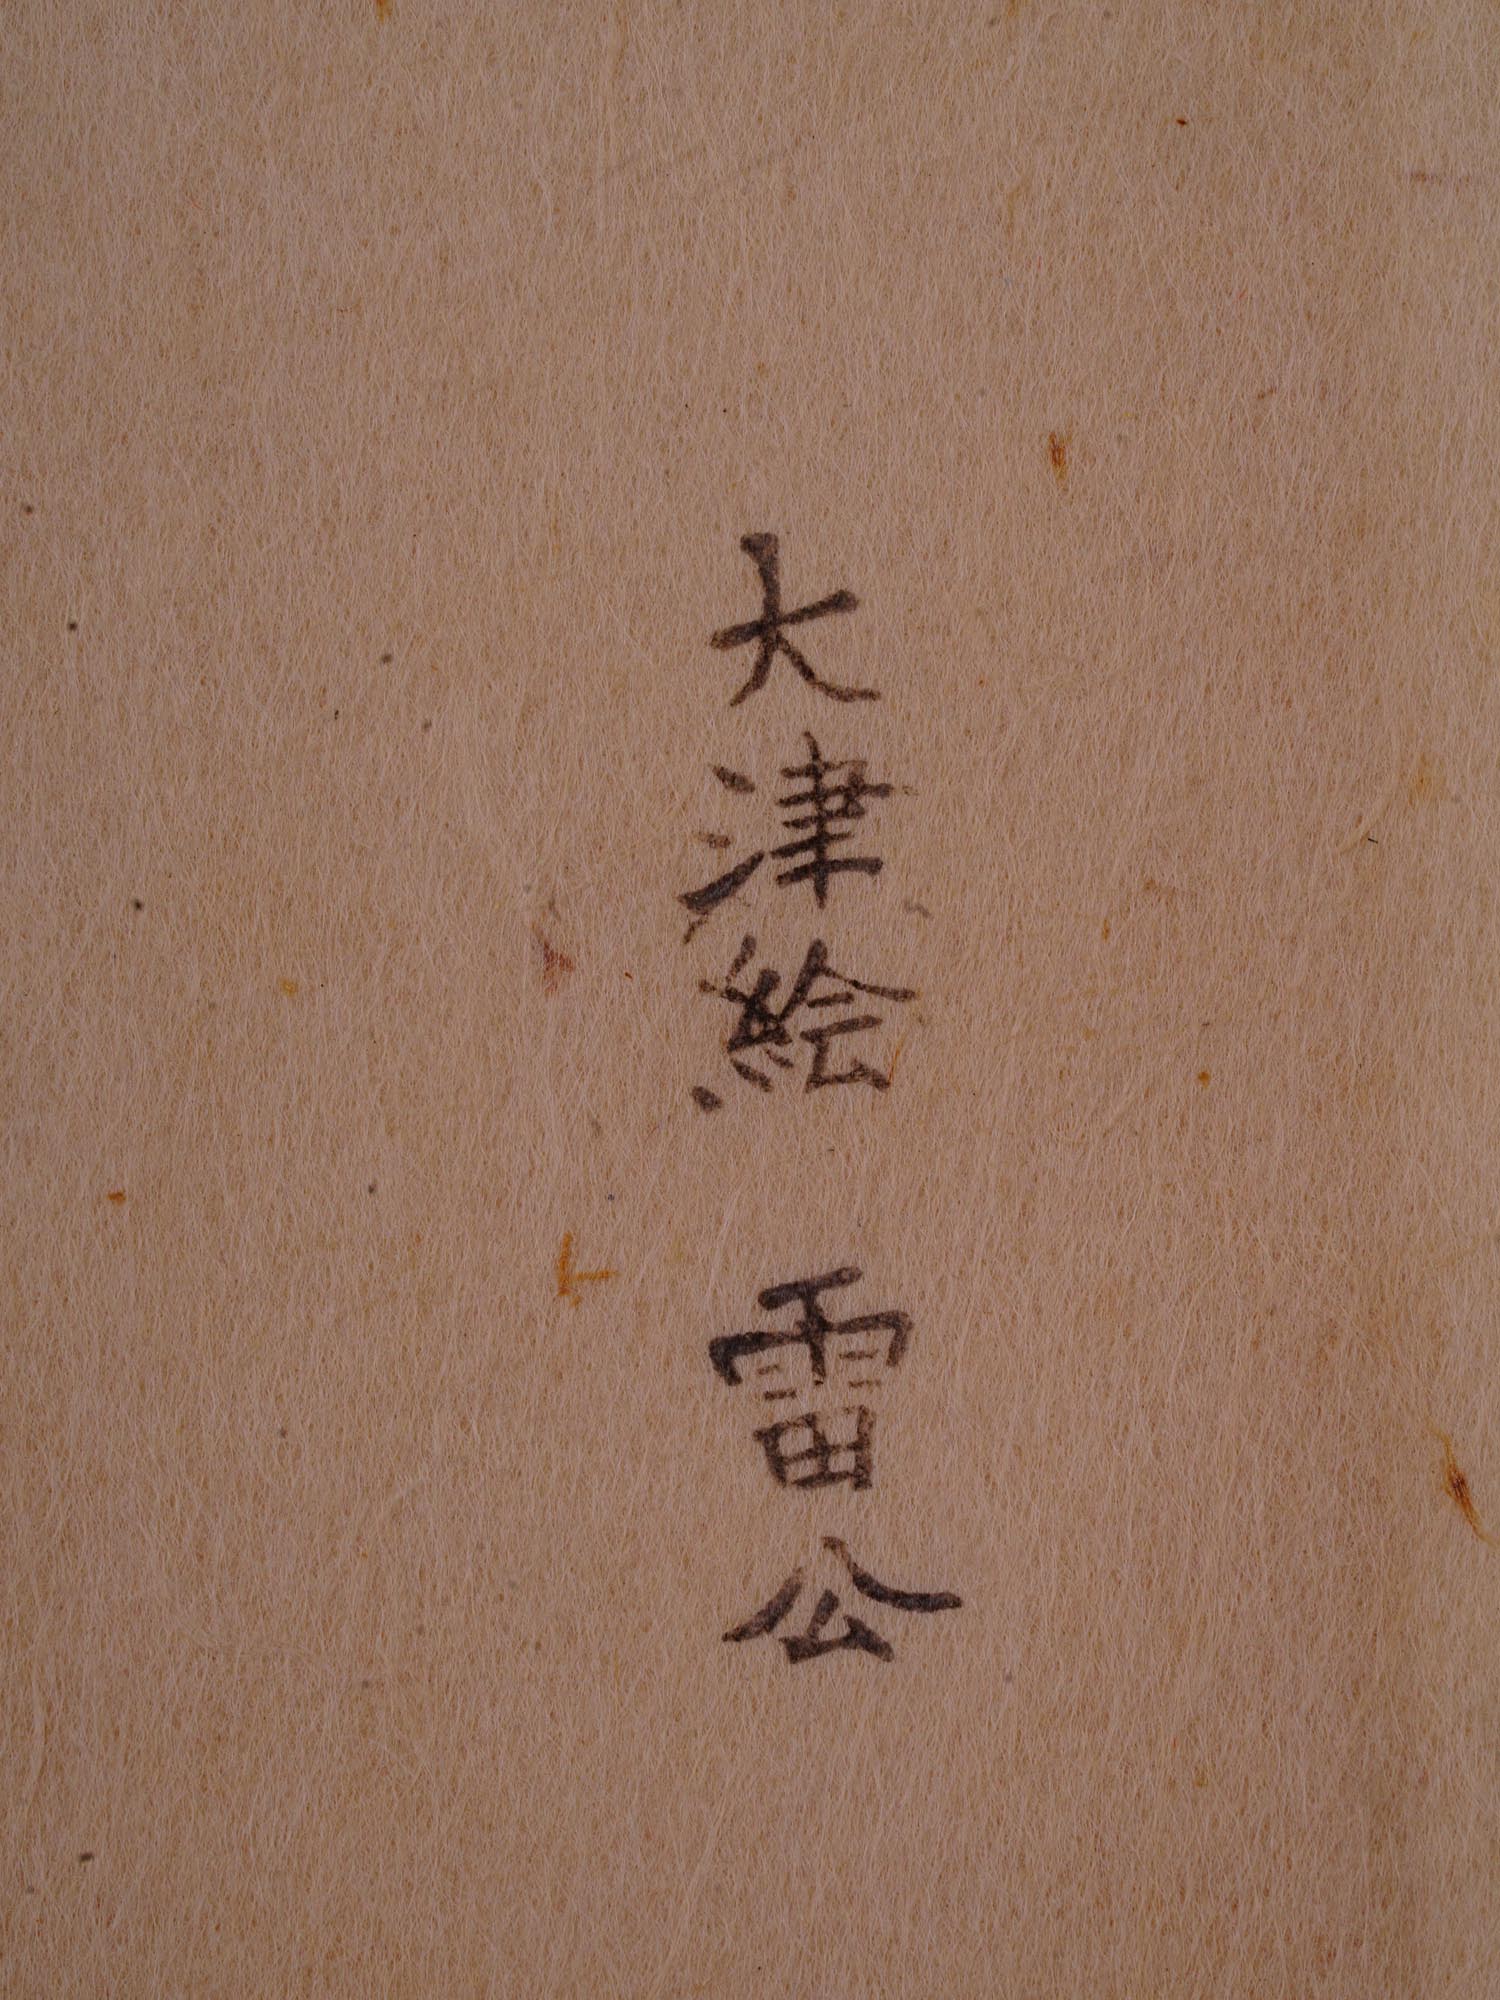 大津絵 雷公